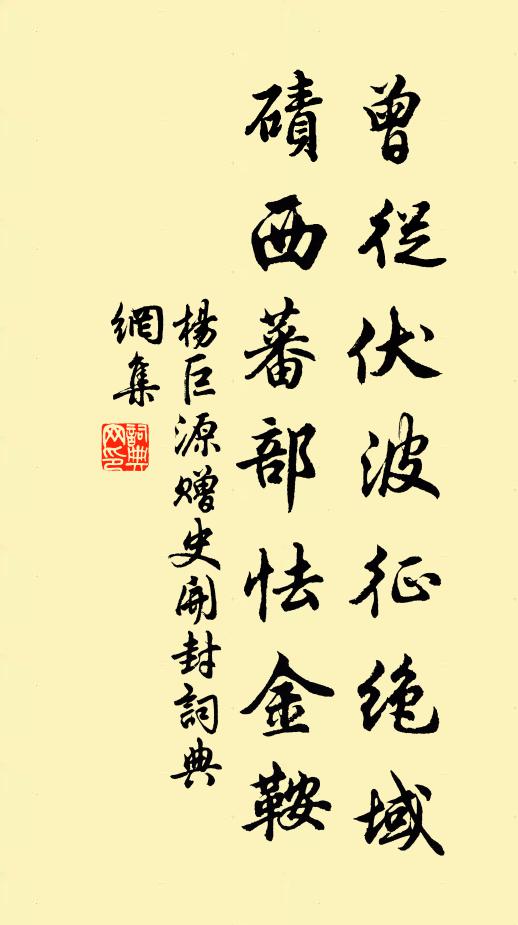 曾從伏波征绝域
磧西蕃部怯金鞍
楊巨源赠史開封詞典
網集
詞典
网印